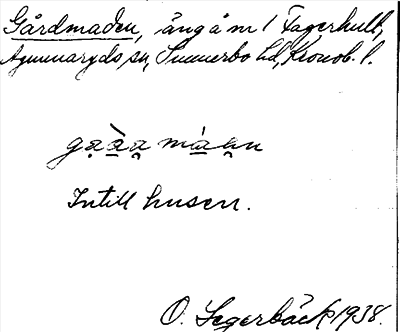 Gårdmaden, äng å nr 1 Fagerhult,
Agunnaryds sn, Sunnerbo hd, Kronob. l.
Intill husen.
O. Segerbäck 1938.